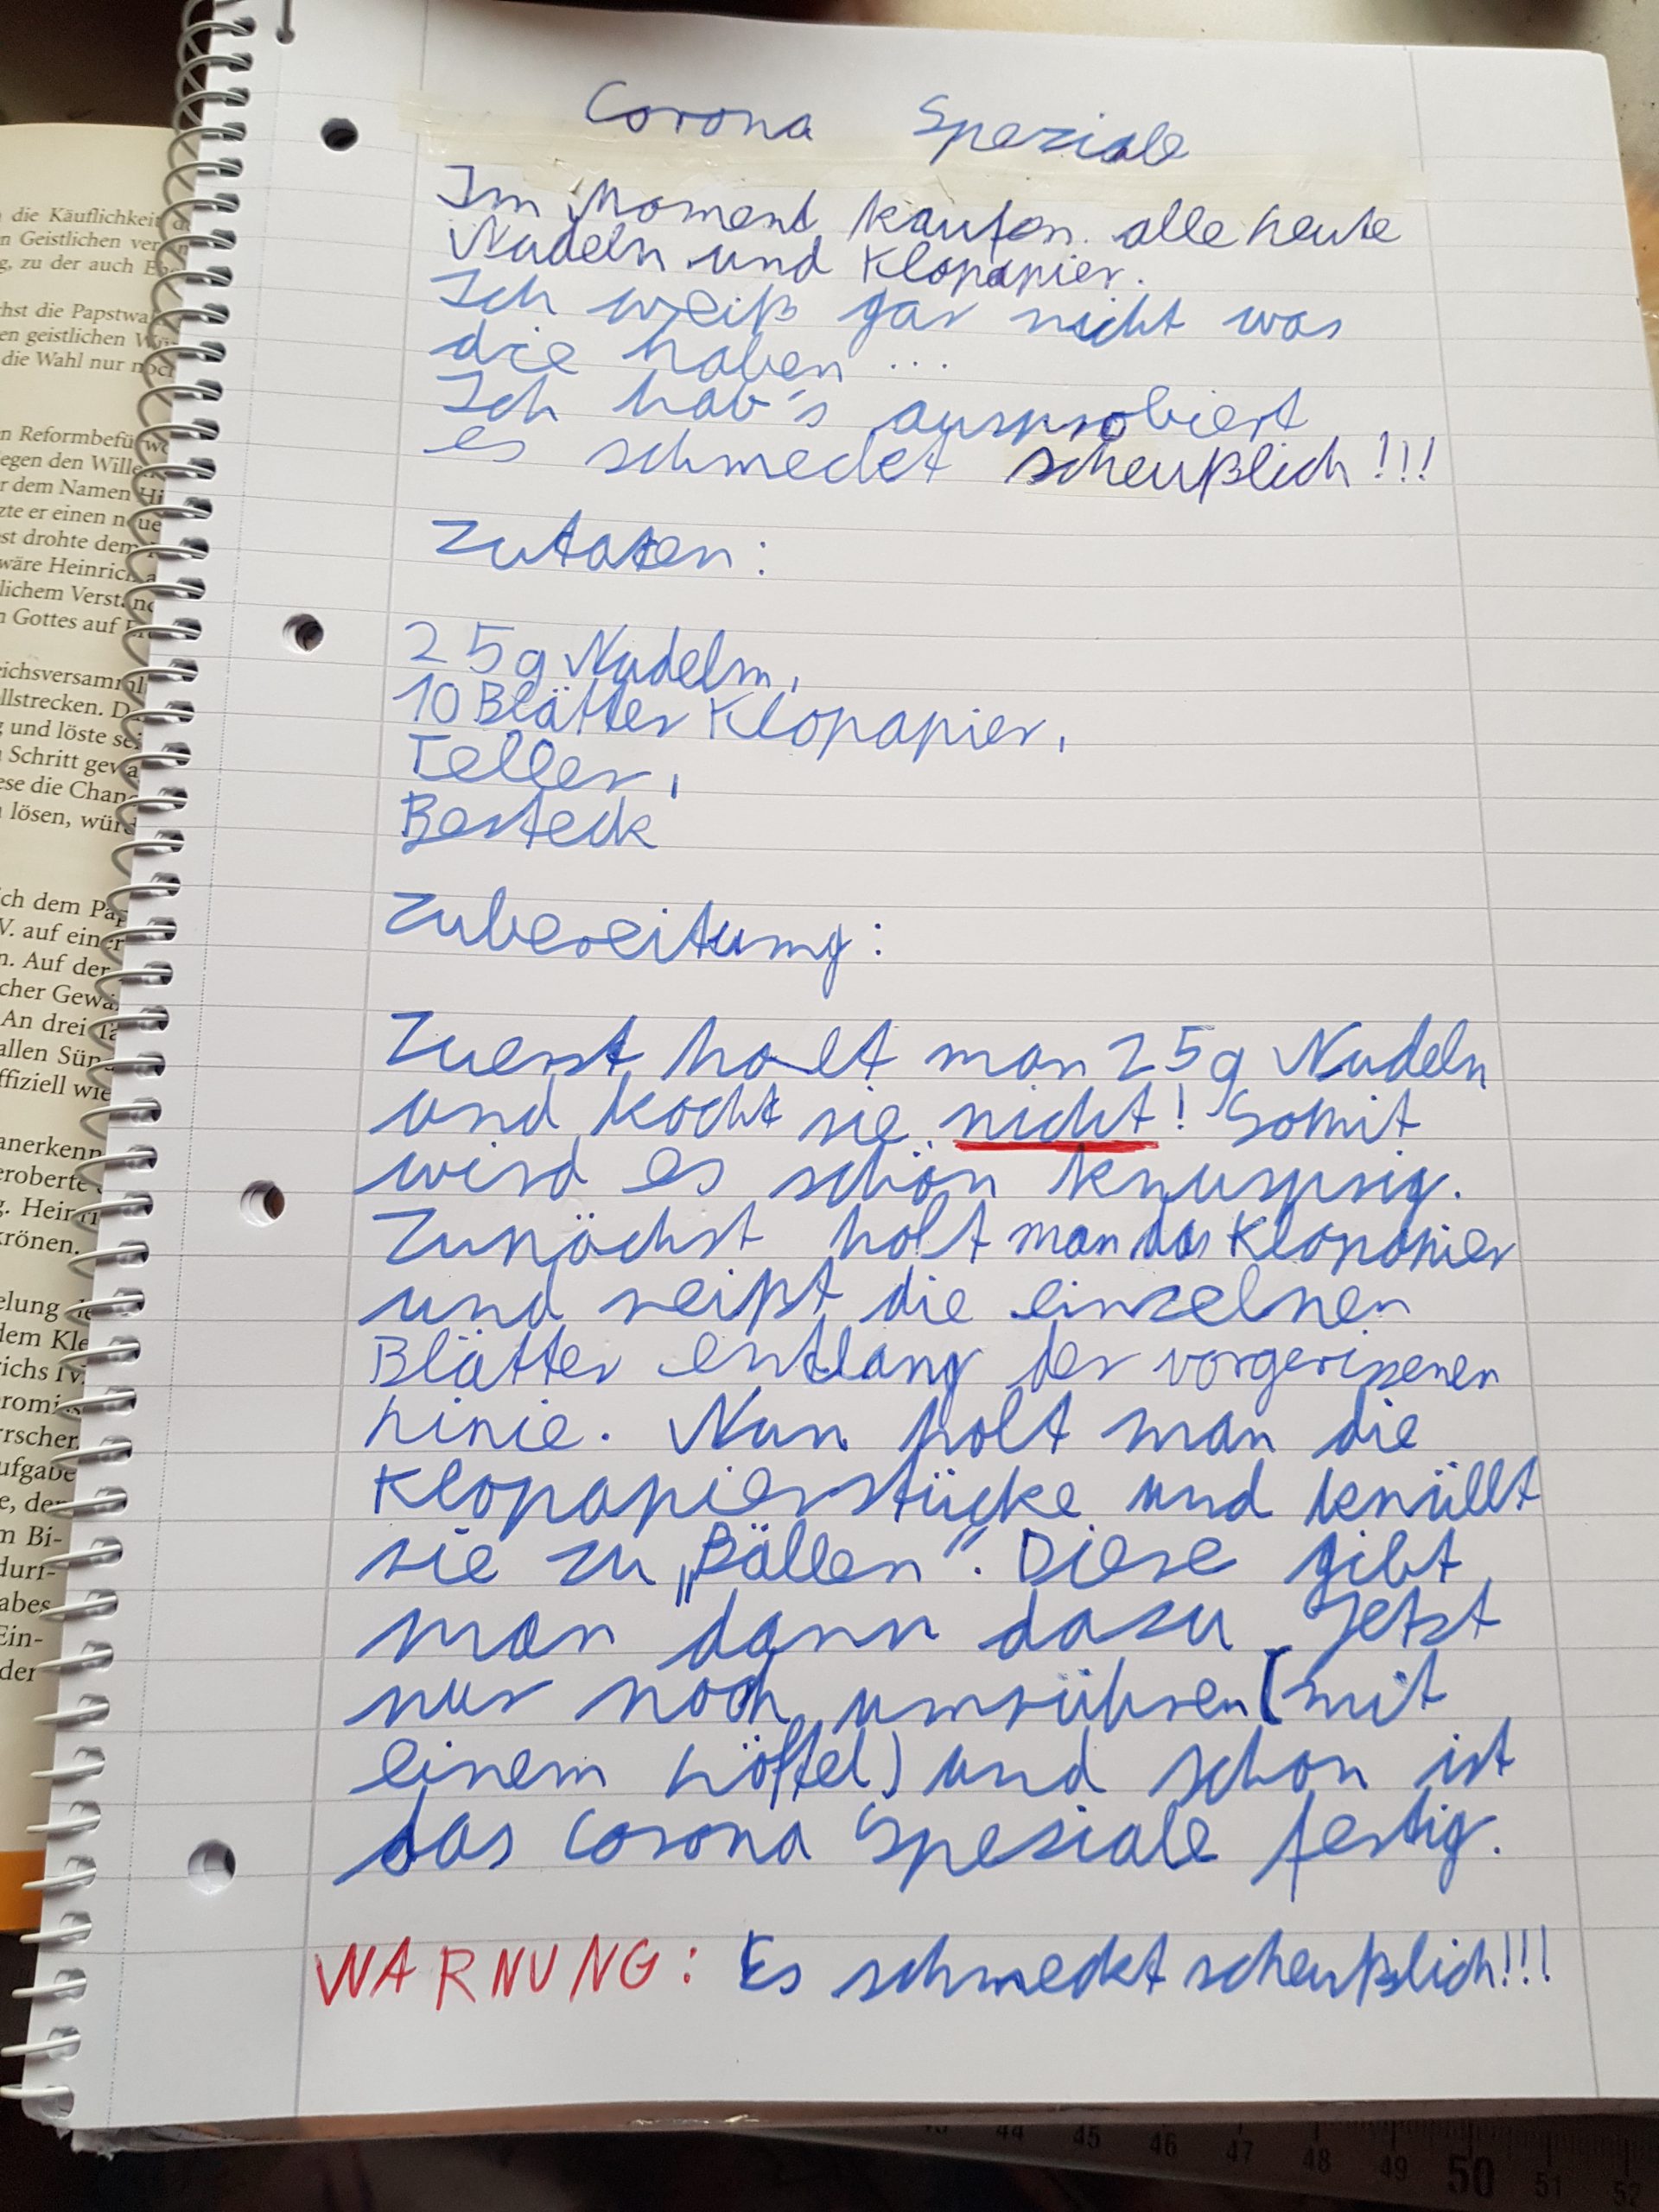 Corona Speziale
Im Moment kaufen alle Leute
Nudeln und Klopapier.
Ich weiß gar nicht was
die haben ...
Ich hab's ausprobiert
es schmeckt scheußlich!!!
Zutaten:
25g Nudeln,
10 Blätter Klopapier,
Teller,
Besteck
Zubereitung:
Zuerst holt man 25g Nudeln
und kocht sie nicht! Somit
wird es schön knusprig.
Zunächst holt man das Klopapier
und reißt die einzelnen
Blätter entlang der vorgerissenen
Linie. Nun holt man die
Klopapierstücke und knüllt
sie zu „Bällen“. Diese gibt
man dann dazu. Jetzt
nur noch umrühren (mit
einem Löffel) und schon ist
das Corona Speziale fertig.
WARNUNG: Es schmeckt scheußlich!!!
die Käuflichkeit
n Geistlichen ver
g, zu der auch
hst die Papstwa
en geistlichen
die Wahl nur noch
n Reformbefürwo
egen den Wille
r dem Namen Hi
zte er einen neue
st drohte dem
wäre Heinrich
lichem Verständ
n Gottes auf
eichsversamml
llstrecken. D
g und löste se
Schritt gewa
ese die Chanc
lösen, würd
ch dem Pap
V. auf einer
n. Auf der
cher Gewa
An drei Ta
allen Sün
ffiziell wie
anerkenn
eroberte
g. Heinri
krönen.
elung
dem Kle
ichs IV.
romi
rrscher
ufgabe
e, der
m Bi-
durf-
abes
Ein-
der
44 45 46 47 48 49 50 51 52